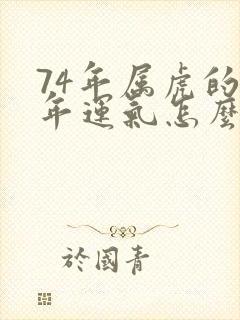 74年属虎的
年運氣怎麼
於國青